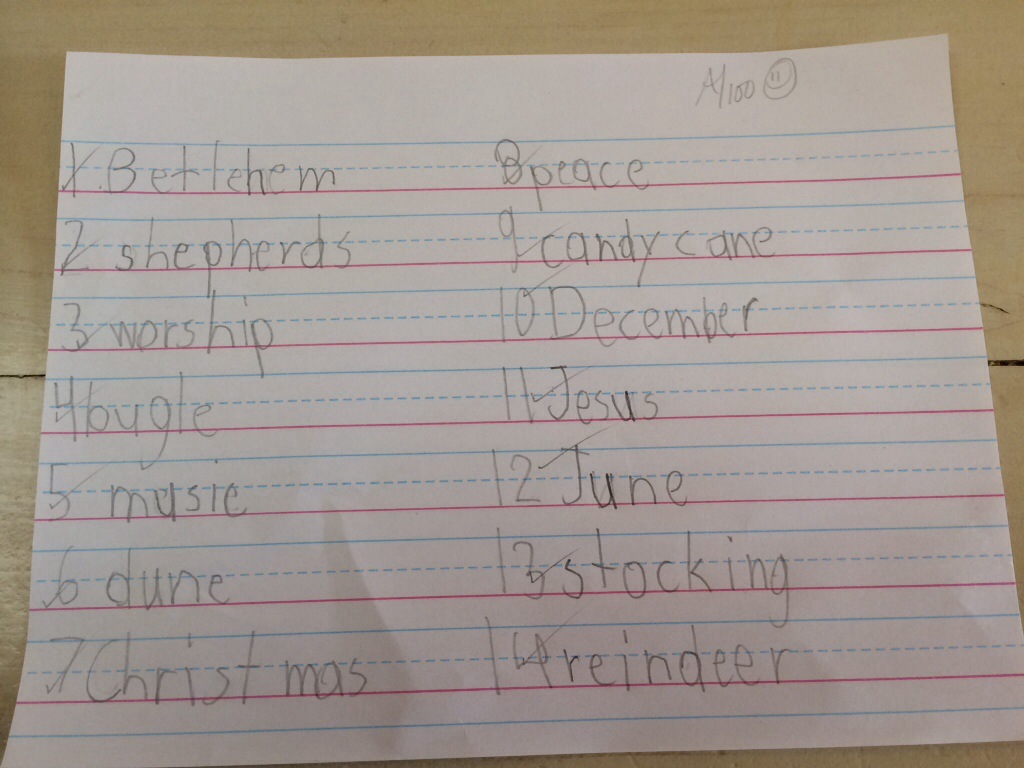 A/100
1. Betlehem
2 shepherds
3 worship
4 bugle
5 music
6 dune
7 Christmas
8 peace
9 candy cane
10 December
11 Jesus
12 June
13 stocking
14 reindeer